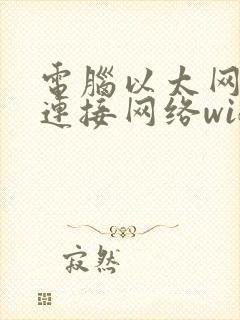 電腦以太网
連接网络wi
寂然